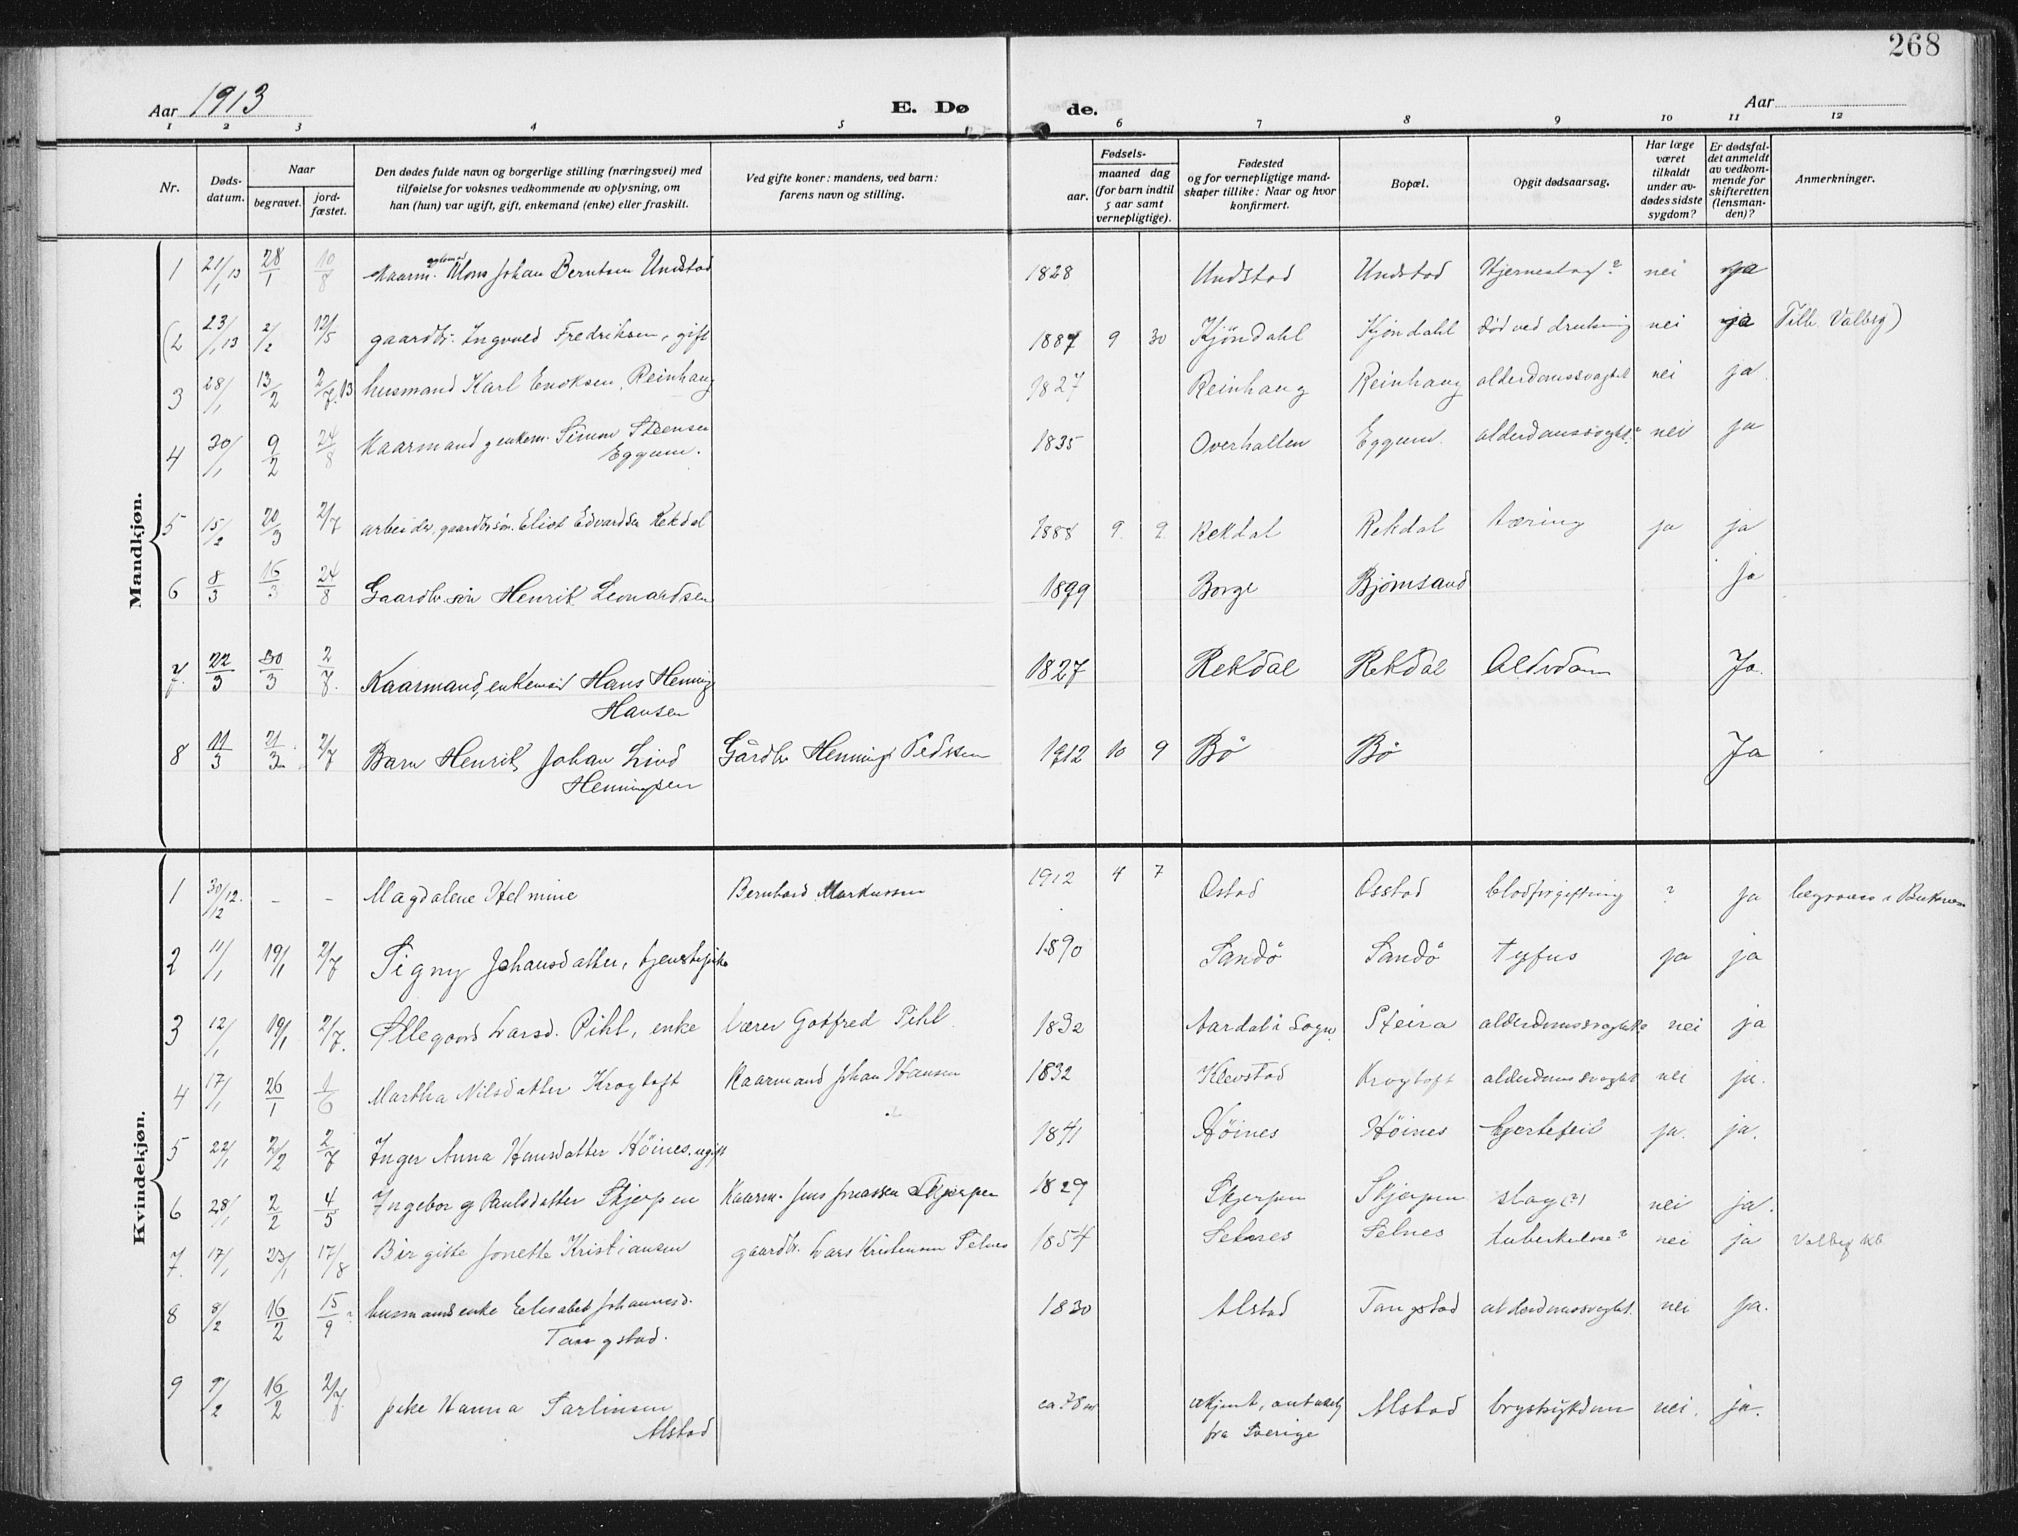 268
Aar 1913
E. Dø de.
Aar
1 2 3 4 5 6 7 8 9 10 11 12
Nr.
Døds-
datum.
Naar
begravet.
jord-
fæstet.
Den dødes fulde navn og borgerlige stilling (næringsvei) med
tilføielse for voksnes vedkommende av oplysning, om
han (hun) var ugift, gift, enkemand (enke) eller fraskilt.
Ved gifte koner: mandens, ved barn:
farens navn og stilling.
Fødsels-
aar.
maaned dag
(for barn indtil
5 aar samt
vernepligtige).
Fødested
og for vernepligtige mand-
skaper tillike: Naar og hvor
konfirmert.
Bopæl.
Opgit dødsaarsag.
Har læge
været
tilkaldt
under av-
dødes sidste
sygdom?
Er dødsfal-
det anmeldt
av vedkom-
mende for
skifteretten
(lensman-
den)?
Anmerkninger.
Mandkjøn.
1 21/1 13 28/1 10/8 Kaarm. Mons Johan Berntsen Undstad 1828 Undstad Undstad Hjerneslag? nei ja
(2 23/1 13 2/2 12/5 gaardbr. Ingvald Fredriksen, gift 1887 9 30 Kjøndahl Kjøndahl død ved drukning nei ja Tilh. Valberg)
3 28/1 13/2 2/7 13 husmand Karl Enoksen, Reinhaug 1827 Reinhaug Reinhaug alderdomssvaghet nei ja.
4 30/1 9/2 24/8 Kaarmand g enkem. Simon Steensen
Eggum. 1835 Overhallen Eggum. alderdomssvaghet? nei ja
5 15/2 20/3 2/7 arbeider, gaardbrsøn. Eliot Edvardsen Rekdal 1888 9. 9. Rekdal Rekdal tæring ja ja
6 8/3 16/3 24/8 Gaardbr. søn Henrik Leonardsen 1899 Borge Bjørnsand ja
7. 22/3 30/3 2/7. Kaarmand, enkemand Hans Henning
Hansen 1827 Rekdal Rekdal Alderdom Ja.
8 11/3 21/3 2/7 Barn Henrik Johan Lind
Henningsen Gårdbr Henning Pedersen 1912 10 9 Bø Bø Ja
Kvindekjøn.
1 30/12 12. - - Magdalene Helmine Bernhard Markussen 1912 4 7 Ostad Osstad blodforgiftning ? ja begraves i
2 11/1 19/1 2/7 Signy Johansdatter, tjenestepike 1890 Sandø Sandø tyfus ja ja
3 12/1 19/1 2/7. Larsd. Pihl, enke Lærer Gotfred Pihl. 1832 Aardal i Sogn. Steira alderdomssvaghet nei ja
4 17/1 26/1 1/6 Martha Nilsdatter Krogtoft Kaarmand Johan Hansen 1832 Klevstad Krogtoft alderdomssvaghet nei ja.
5 22/1 2/2 2/7 Inger Anna Hansdatter Høines. ugift 1841 Høines Høines hjertefeil ja. ja.
6 28/1 2/2 4/5 Ingeborg Paulsdatter Skjerpen Kaarm. Jens Jonassen Skjerpen 1829 Skjerpen Skjerpen slag (?) nei ja.
7. 17/1 23/1 17/8 Birgitte Jonette Kristiansen gaardbr. Lars Kristensen Selnes 1854 Selnes Selnes tuberkulose? nei ja Valberg kb
8 8/2 16/2 15/9? husmandsenke Elisabet Johannesd.
Tangstad. 1830 Alstad Tangstad alderdomssvaghet. nei ja.
9 9/2 16/2 2/7. pike Hanna Sarlinsen
Alstad ca 78 aar ukjent, antakelig
fra Sverige Alstad brystsykdom nei. ja.